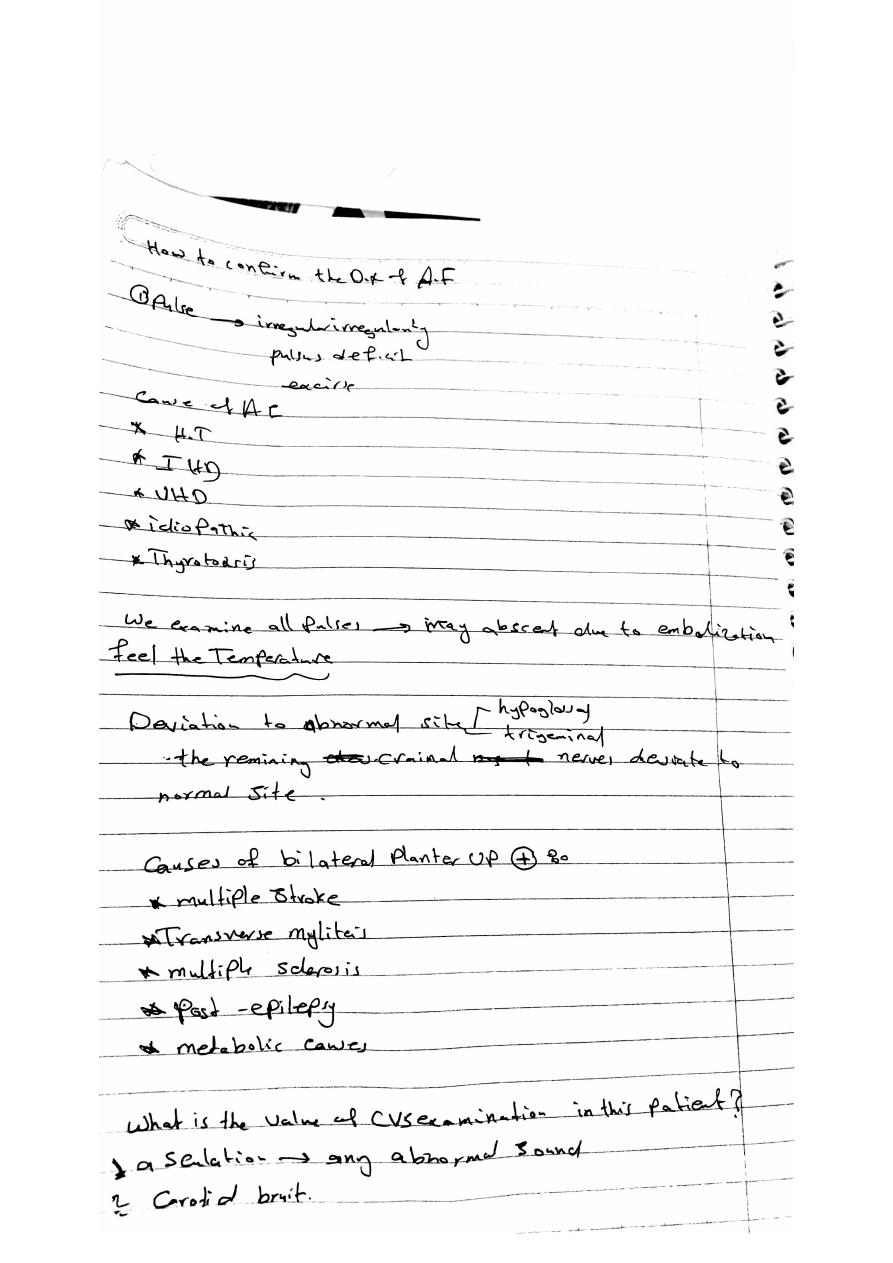 How to confirm the D.x of A.F
① Pulse → irregular irregularity
pulsus deficit
Cause of A.F
* H.T
* IHD
* VHD
* idiopathic
* Thyrotoxsis
We examine all pulses → may abscent due to embolization
feel the Temperature
Deviation to abnormal site hypoglossal
trigeminal
- the remining crainal nerves deviate to
normal site.
Causes of bilateral Planter UP ⊕ :-
* multiple stroke
* Transverse myliteis
* multiple sclerosis
* Post - epilepsy
* metabolic causes
What is the value of CVS examination in this patient?
1 ascultation → any abnormal sound
2 Carotid bruit.